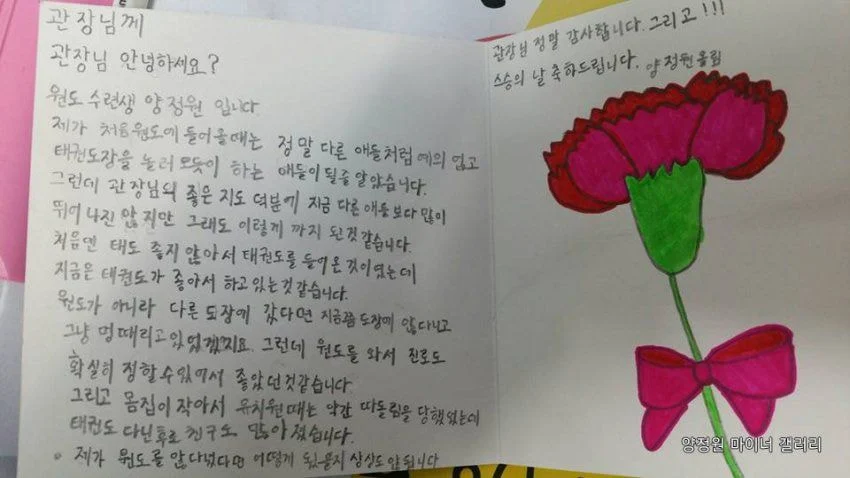 관장님께
관장님 안녕하세요?
원도 수련생 양정원 입니다
제가 처음 원도에 들어올때는 정말 다른 애들처럼 예의 없고
태권도장을 놀러 오듯이 하는 애들이 될줄 알았습니다.
그런데 관장님의 좋은 지도 덕분에 지금 다른 애들 보다 많이
뛰어 나진 않지만 그래도 이렇게 까지 된것 같습니다.
처음엔 태도 좋지 않아서 태권도를 들어온 것이였는데
지금은 태권도가 좋아서 하고 있는것 같습니다.
원도가 아니라 다른 도장에 갔다면 지금쯤 도장에 안다니고
그냥 멍때리고 있었겠지요. 그런데 원도를 와서 진로도
확실히 정할 수 있어서 좋았던 것같습니다.
그리고 몸집이 작아서 유치원때는 약간 따돌림을 당했었는데
태권도 다닌 후로 친구도 많아 졌습니다.
제가 원도를 안다녔다면 어떻게 됬을지 상상도 안됩니다
관장님 정말 감사합니다. 그리고!!!
스승의 날 축하드립니다. 양정원올림
양정원 마이너 갤러리